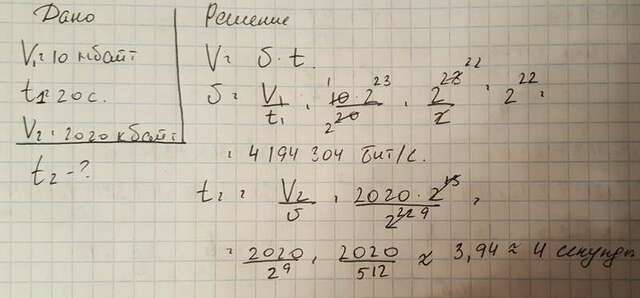 Дано
V₁=10 мбайт
t1=20с.
V₂=2020 кбайт
t₂-?
Решение
V= S·t.
S= V₁/t₁ = 10·2²³/20 = 2²³/2 = 2²² =
= 4 194 304 бит/с.
t₂= V₂/S = 2020·2¹³/2²² ⁹ =
= 2020/2⁹ = 2020/512 ≈ 3,94 ≈ 4 секунды